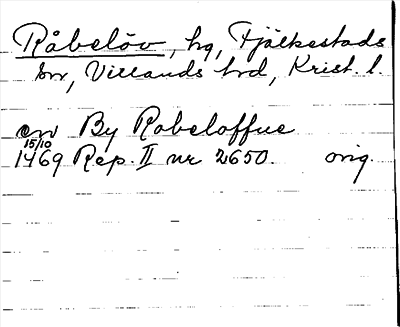 Råbelöv, hg, Fjälkestads
sn, Villands hd, Krist. l.
en By Robeloffue
15/10
1469 Rep. II nr 2650. orig.